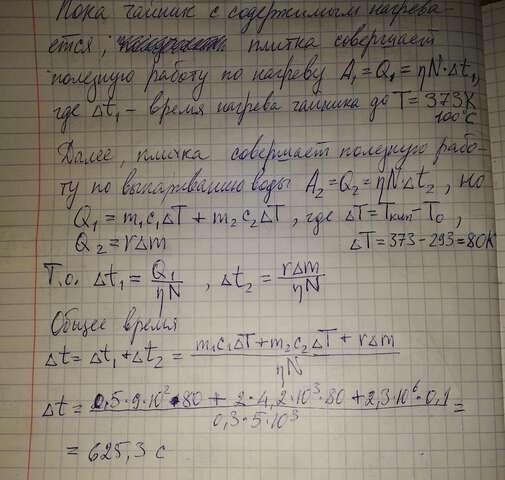 Пока чайник с содержимым нагрева-
ется, плитка совершает
полезную работу по нагреву A₁ = Q₁ = ηN·Δt₁,
где Δt₁ – время нагрева чайника до T = 373K
100°C
Далее, плитка совершает полезную рабо-
ту по выпариванию воды A₂ = Q₂ = ηN·Δt₂, но
Q₁ = m₁c₁ΔT + m₂c₂ΔT, где ΔT = Tкип – T₀,
Q₂ = rΔm ΔT = 373 - 293 = 80K
Т.о. Δt₁ = Q₁/ηN, Δt₂ = rΔm/ηN
Общее время
Δt = Δt₁ + Δt₂ = (m₁c₁ΔT + m₂c₂ΔT + rΔm)/ηN
Δt = (0,5·9·10²·80 + 2·4,2·10³·80 + 2,3·10⁶·0,1)/(0,3·5·10³) =
= 625,3 с